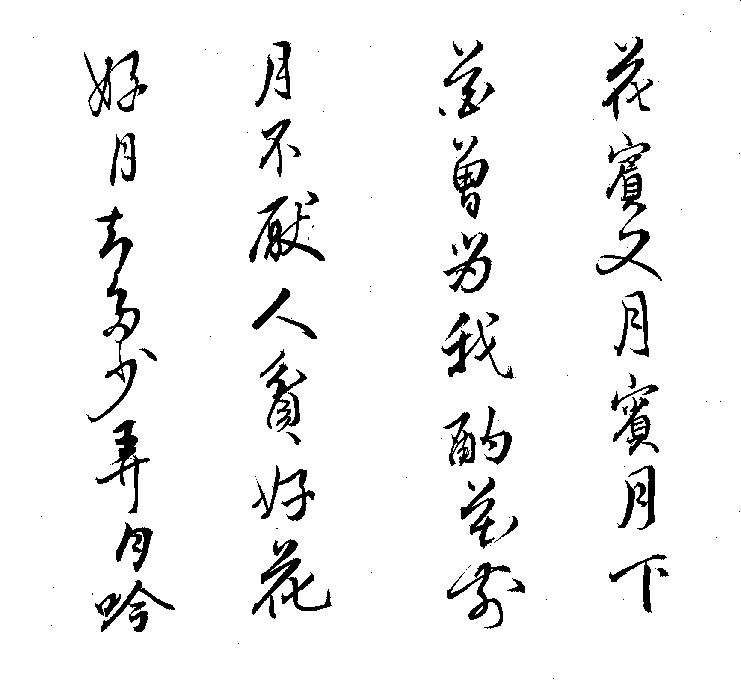 花賓又月賓月下
花曾為我酌花前
月不厭人貧好花
好月知多少弄月吟